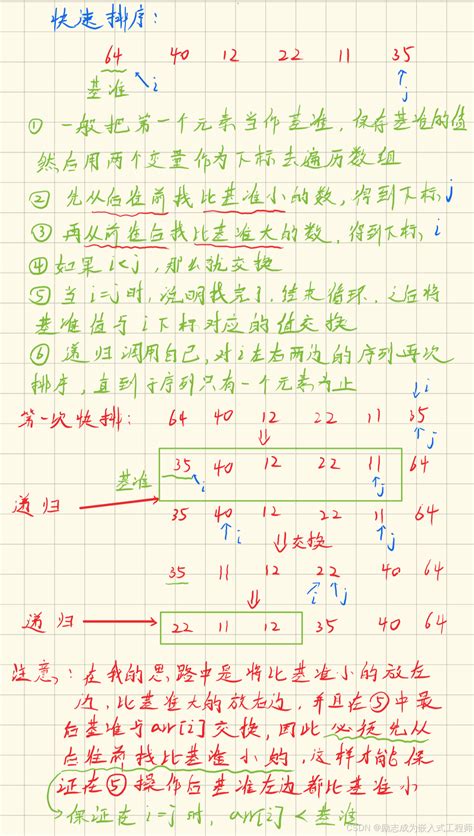 快速排序:
64 40 12 22 11 35
基准 i j
① 一般把第一个元素当作基准，保存基准的值
然后用两个变量作为下标去遍历数组
② 先从后往前找比基准小的数，得到下标j
③ 再从前往后找比基准大的数，得到下标i
④ 如果i<j，那么就交换
⑤ 当i=j时，说明找完了，结束循环，之后将
基准值与i下标对应的值交换
⑥ 递归调用自己，对i左右两边的序列再次
排序，直到子序列只有一个元素为止
i
第一次快排: 64 40 12 22 11 35
j
35 40 12 22 11 64
基准 i j
递归
35 40 12 22 11 64
i 交换 j
35 11 12 22 40 64
i j
递归 22 11 12 35 40 64
注意: 在我的思路中是将比基准小的放左
边，比基准大的放右边，并且在⑤中最
后基准与arr[i]交换，因此必须先从
后往前找比基准小的，这样才能保
证在⑤操作后基准左边都比基准小
保证在i=j时，arr[i]<基准
CSDN @励志成为嵌入式工程师